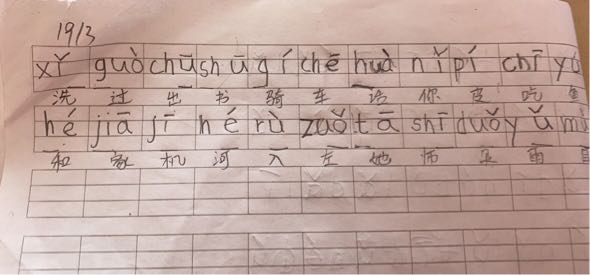 19/3
xǐ guò chū shū qí chē huà nǐ pí chī
洗 过 出 书 骑 车 话 你 皮 吃 鱼
hé jiā jī hé rù zuǒ tā shī duǒ yǔ
和 家 机 河 入 左 她 师 朵 雨